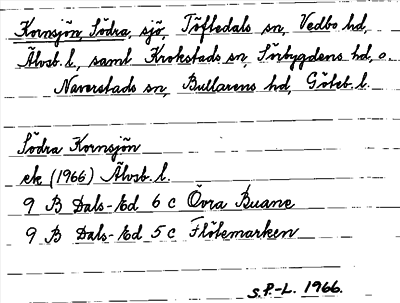 Kornsjön, Södra, sjö, Töftedals sn, Vedbo hd,
Älvsb. l., samt Krokstads sn, Sörbygdens hd, o.
Naverstads sn, Bullarens hd, Göteb. l.
Södra Kornsjön
ek (1966) Älvsb. l.
9 B Dals-Ed 6 c Övra Buane
9 B Dals-Ed 5 c Flötemarken
S.P-L. 1966.